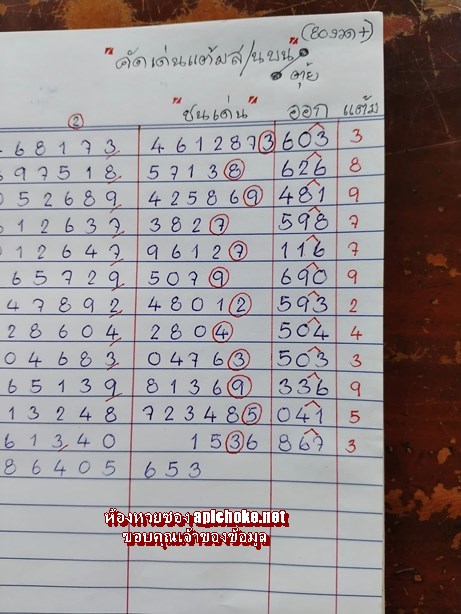 (80งวด+)
"คัดเด่นแต้มส/นบน"
ตุ้ย
② "ชนเด่น" ออก แต้ม
68173 4612873 603 3
97518 57138 626 8
052689 425869 481 9
12637 3827 598 7
12647 96127 116 7
65729 5079 690 9
47892 48012 593 2
28604 2804 504 4
04683 04763 503 3
65139 81369 336 9
13248 723485 041 5
61340 1536 867 3
86405 653
ห้องหวยซอง apichoke.net
ขอบคุณเจ้าของข้อมูล